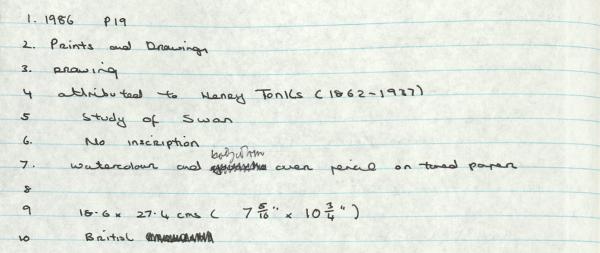 1. 1986 P19
2. Prints and Drawings
3. Drawing
4 attributed to Henry Tonks (1862-1937)
5 Study of Swan
6. No inscription
bodycolour
7. watercolour and over pencil on toned paper
8
9 18.6 x 27.4 cms ( 7 5/16" x 10 3/4" )
10 British